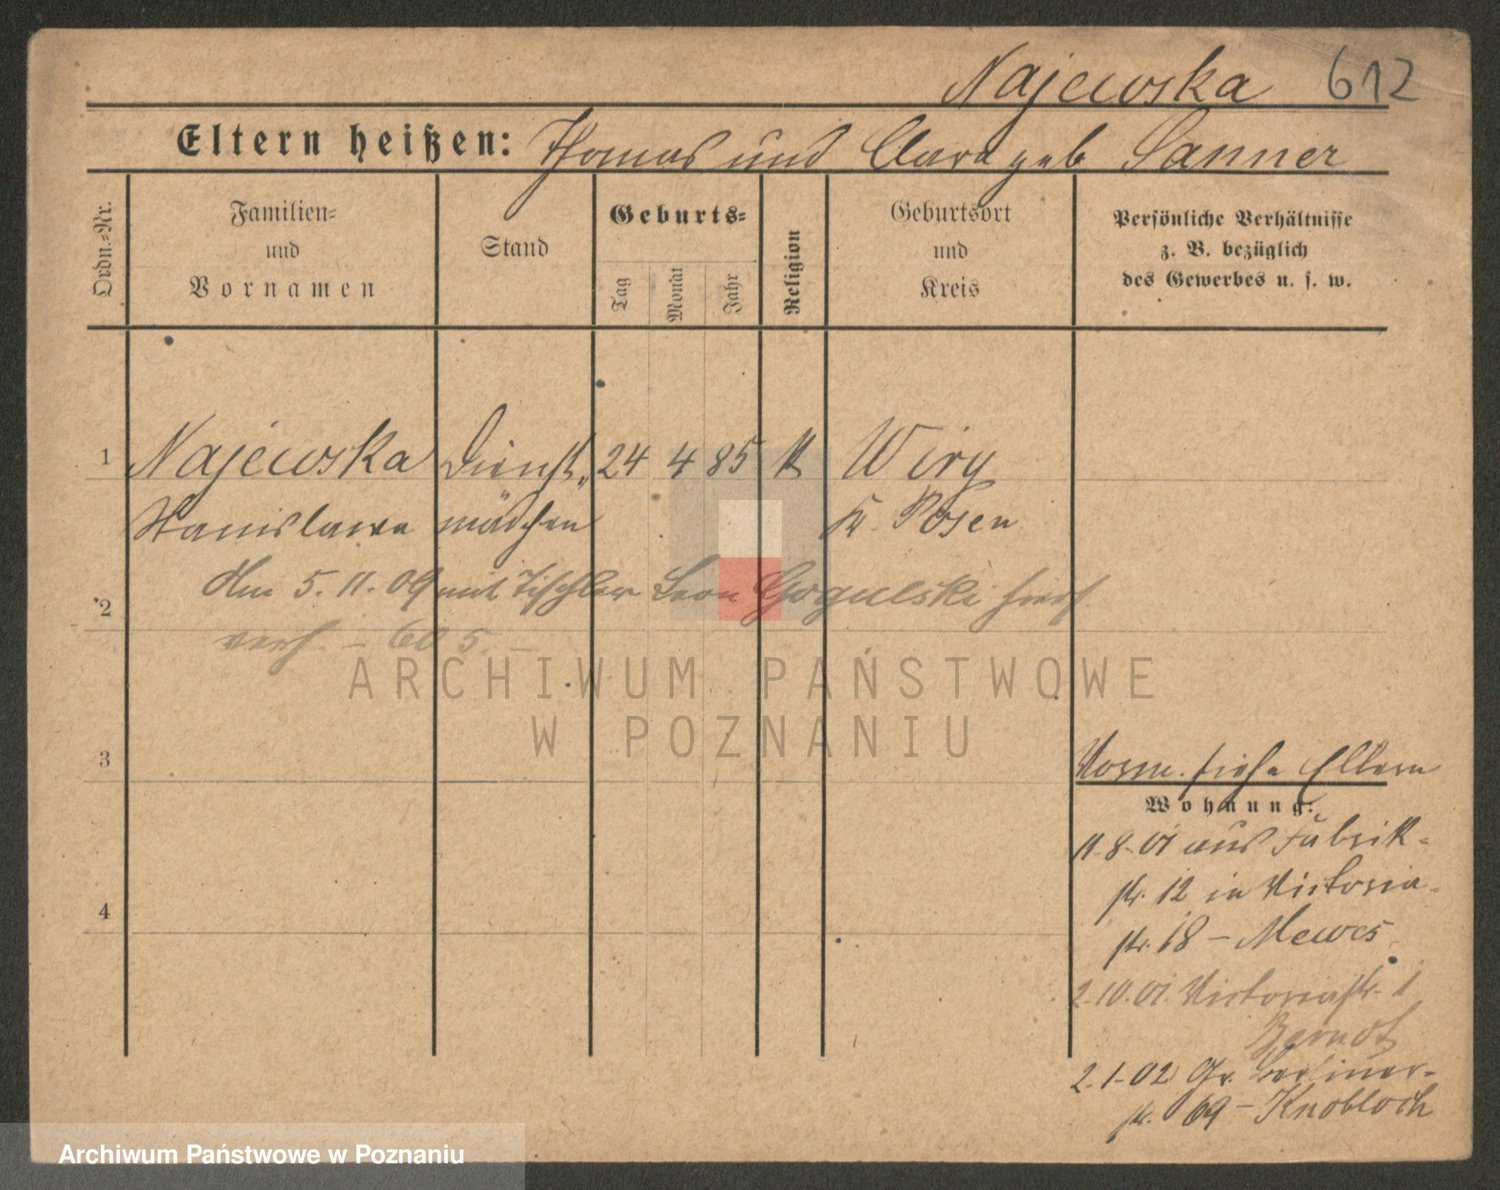 Najewska 612
Eltern heißen: Thomas und Clara geb Sanner
Ordn.-Nr.
Familien-
und
Vornamen
Stand
Geburts-
Tag
Monat
Jahr
Religion
Geburtsort
und
Kreis
Persönliche Verhältnisse
z. B. bezüglich
des Gewerbes u. s. w.
1 Najewska Dienst„ 24 4 85 k Wiry
Stanislawa mädchen Kr. Posen
2 Am 5.11.09 mit Tischler Leon Gogulski hier
verh. – 605. –
ARCHIWUM PAŃSTWOWE
W POZNANIU
3
4
Vorm. siehe Eltern
Wohnung:
11.8.01 aus Fabrik-
str. 12 in Victoria-
str. 18 – Mewes
2.10.01 Victoriastr. 1
Berndt
2.1.02 Gr. Berliner-
str. 69 – Knobloch
Archiwum Państwowe w Poznaniu